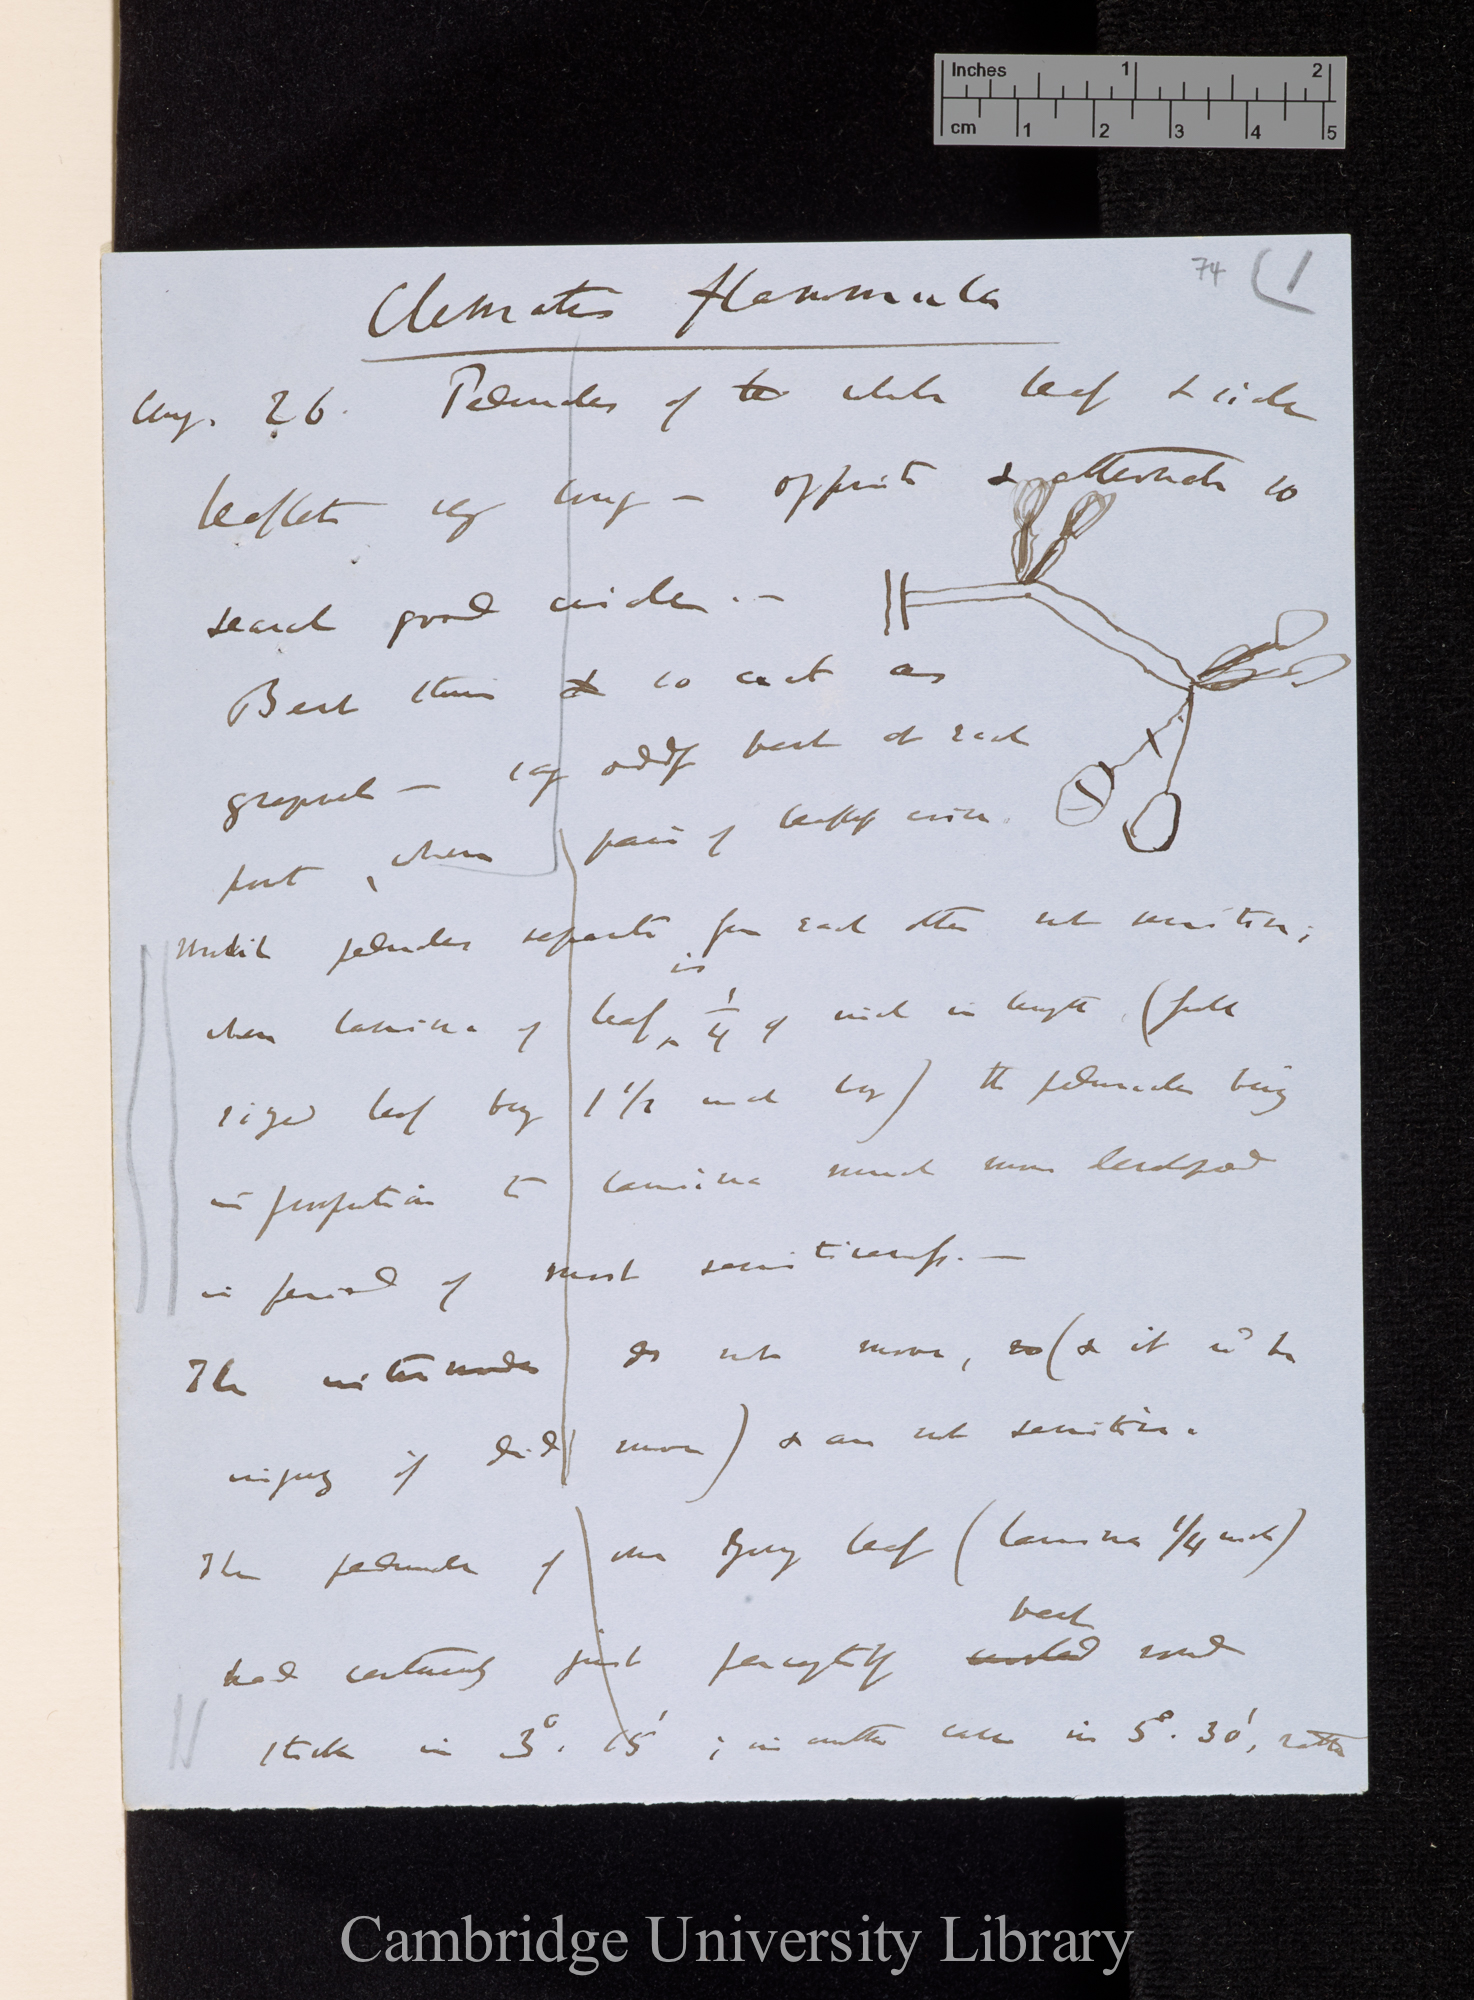 Inches 1 2
cm 1 2 3 4 5
74
Clematis flammula
Aug. 26. Peduncles of to whole leaf & side
leaflets very long — opposite & alternate so
search good wider. —
Bent thus so as to act as
grapnel — very oddly bent at each
part, where pair of leaflets arise.
Until peduncles separate from each other not sensitive;
when lamina of leaf is 1/4 of inch in length (full
sized leaf being 1 1/2 inch long) the peduncles being
in proportion to lamina much more developed
in period of most sensitiveness. —
The internodes do not move, so (& it wd be
injury if did move) & are not sensitive.
The peduncle of one young leaf (lamina 1/4 inch)
had certainly just perceptibly curled bent round
stick in 3°. 15'; in another case in 5°. 30', rather
Cambridge University Library